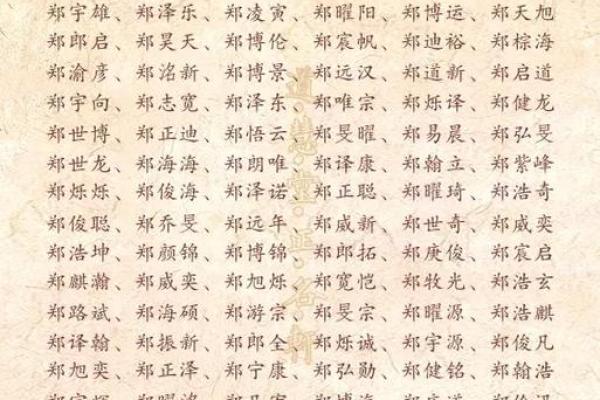 郑宇雄、郑泽乐、郑凌寅、郑曜阳、郑博运、郑天旭
郑郎启、郑昊天、郑博伦、郑宸帆、郑迪裕、郑棕海
郑渝彦、郑洺新、郑博景、郑远汉、郑道新、郑启道
郑宇向、郑志宽、郑泽东、郑唯宗、郑烁译、郑健龙
郑世博、郑正迪、郑悟云、郑旻曜、郑易晨、郑弘旻
郑世龙、郑海海、郑朗唯、郑译康、郑翰立、郑紫峰
郑烁烁、郑俊海、郑泽诺、郑正聪、郑曜琦、郑浩奇
郑俊聪、郑乔旻、郑远年、郑威新、郑世奇、郑威奕
郑浩坤、郑颜锦、郑博锦、郑郎拓、郑庚俊、郑宸启
郑麒瀚、郑威奕、郑旭烁、郑宽恺、郑牧光、郑浩玄
郑路斌、郑海硕、郑游宗、郑旻宗、郑曜源、郑浩麒
郑译翰、郑振新、郑郎全、郑烁诚、郑宇源、郑俊凡
郑旭奕、郑正泽、郑宁康、郑弘勋、郑健铭、郑翰浩